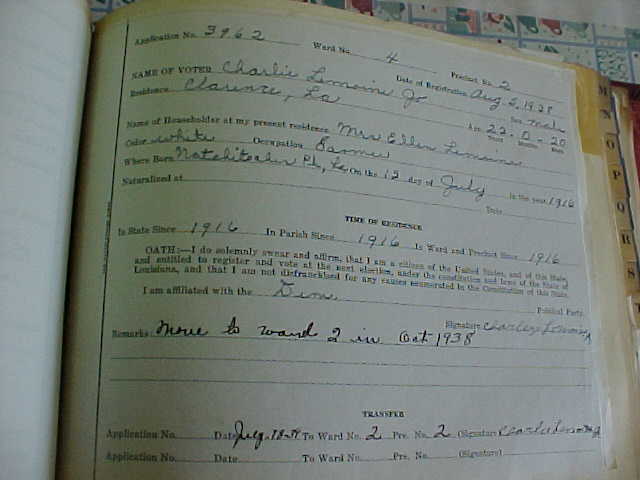 Application No. 3962 Ward No. 4 Precinct No. 2
NAME OF VOTER Charlie Lemoine Jr Date of Registration Aug 2, 1938
Residence Clarence, La Sex Male
Name of Householder at my present residence Mrs Ellen Lemoine Age 22-0-20
Years Months Days
Color white Occupation Farmer
Where Born Natchitoches Ph, La On the 12 day of July in the year 1916
Naturalized at Date
TIME OF RESIDENCE
In State Since 1916 In Parish Since 1916 In Ward and Precinct Since 1916
OATH:—I do solemnly swear and affirm, that I am a citizen of the United States, and of this State,
and entitled to register and vote at the next election, under the constitution and laws of the State of
Louisiana, and that I am not disfranchised for any causes enumerated in the Constitution of this State.
I am affiliated with the Dem Political Party.
Signature Charley Lemoine Jr
Remarks: Move to ward 2 in Oct 1938
TRANSFER
Application No. Date To Ward No. 2 Pre. No. 2 (Signature)
Application No. Date To Ward No. Pre. No. (Signature)
M
N
O
P
Q
R
S